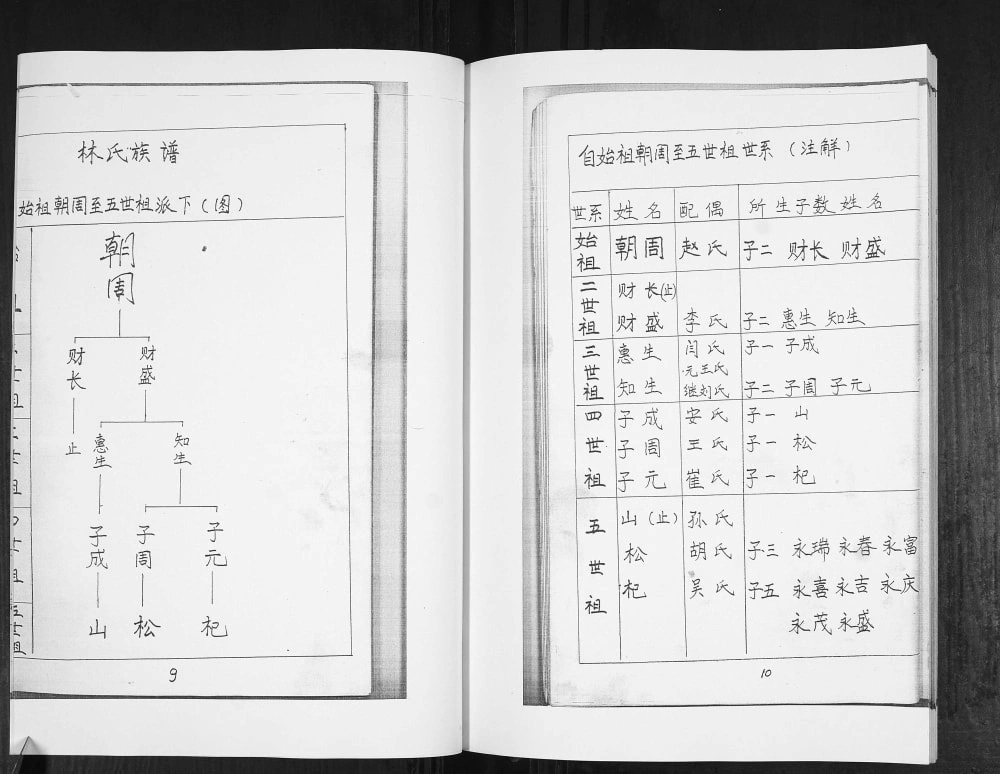 林氏族谱
始祖朝周至五世祖派下（图）
朝周
财长 财盛
止 惠生 知生
子成 子周 子元
山 松 杞
9
自始祖朝周至五世祖世系（注解）
世系 姓名 配偶 所生子数姓名
始祖 朝周 赵氏 子二 财长 财盛
二世祖 财长(止)
财盛 李氏 子二 惠生 知生
三世祖 惠生 闫氏 子一 子成
元王氏
知生 继刘氏 子二 子周 子元
四世祖 子成 安氏 子一 山
子周 王氏 子一 松
子元 崔氏 子一 杞
五世祖 山(止) 孙氏
松 胡氏 子三 永瑞 永春 永富
杞 吴氏 子五 永喜 永吉 永庆
永茂 永盛
10